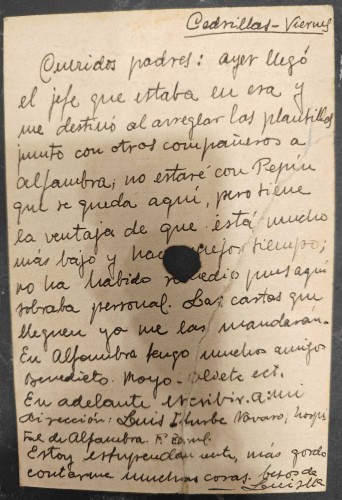 Cedrillas - Viernes
Queridos padres: ayer llegó
el jefe que estaba en esa y
me destinó al arreglar las plantillas
junto con otros compañeros a
Alfambra; no estaré con Pepín
que se queda aquí, pero tiene
la ventaja de que está mucho
más bajo y hace mejor tiempo;
no ha habido remedio pues aquí
sobraba personal. Las cartas que
lleguen ya me las mandarán.
En Alfambra tengo muchos amigos
Benedicto. Moyo. ect.
En adelante escribir a mi
dirección: Luis Navarro; hospi
tal de Alfambra.
Estoy estupendamente, más gordo
contarme muchas cosas. besos de
Luis